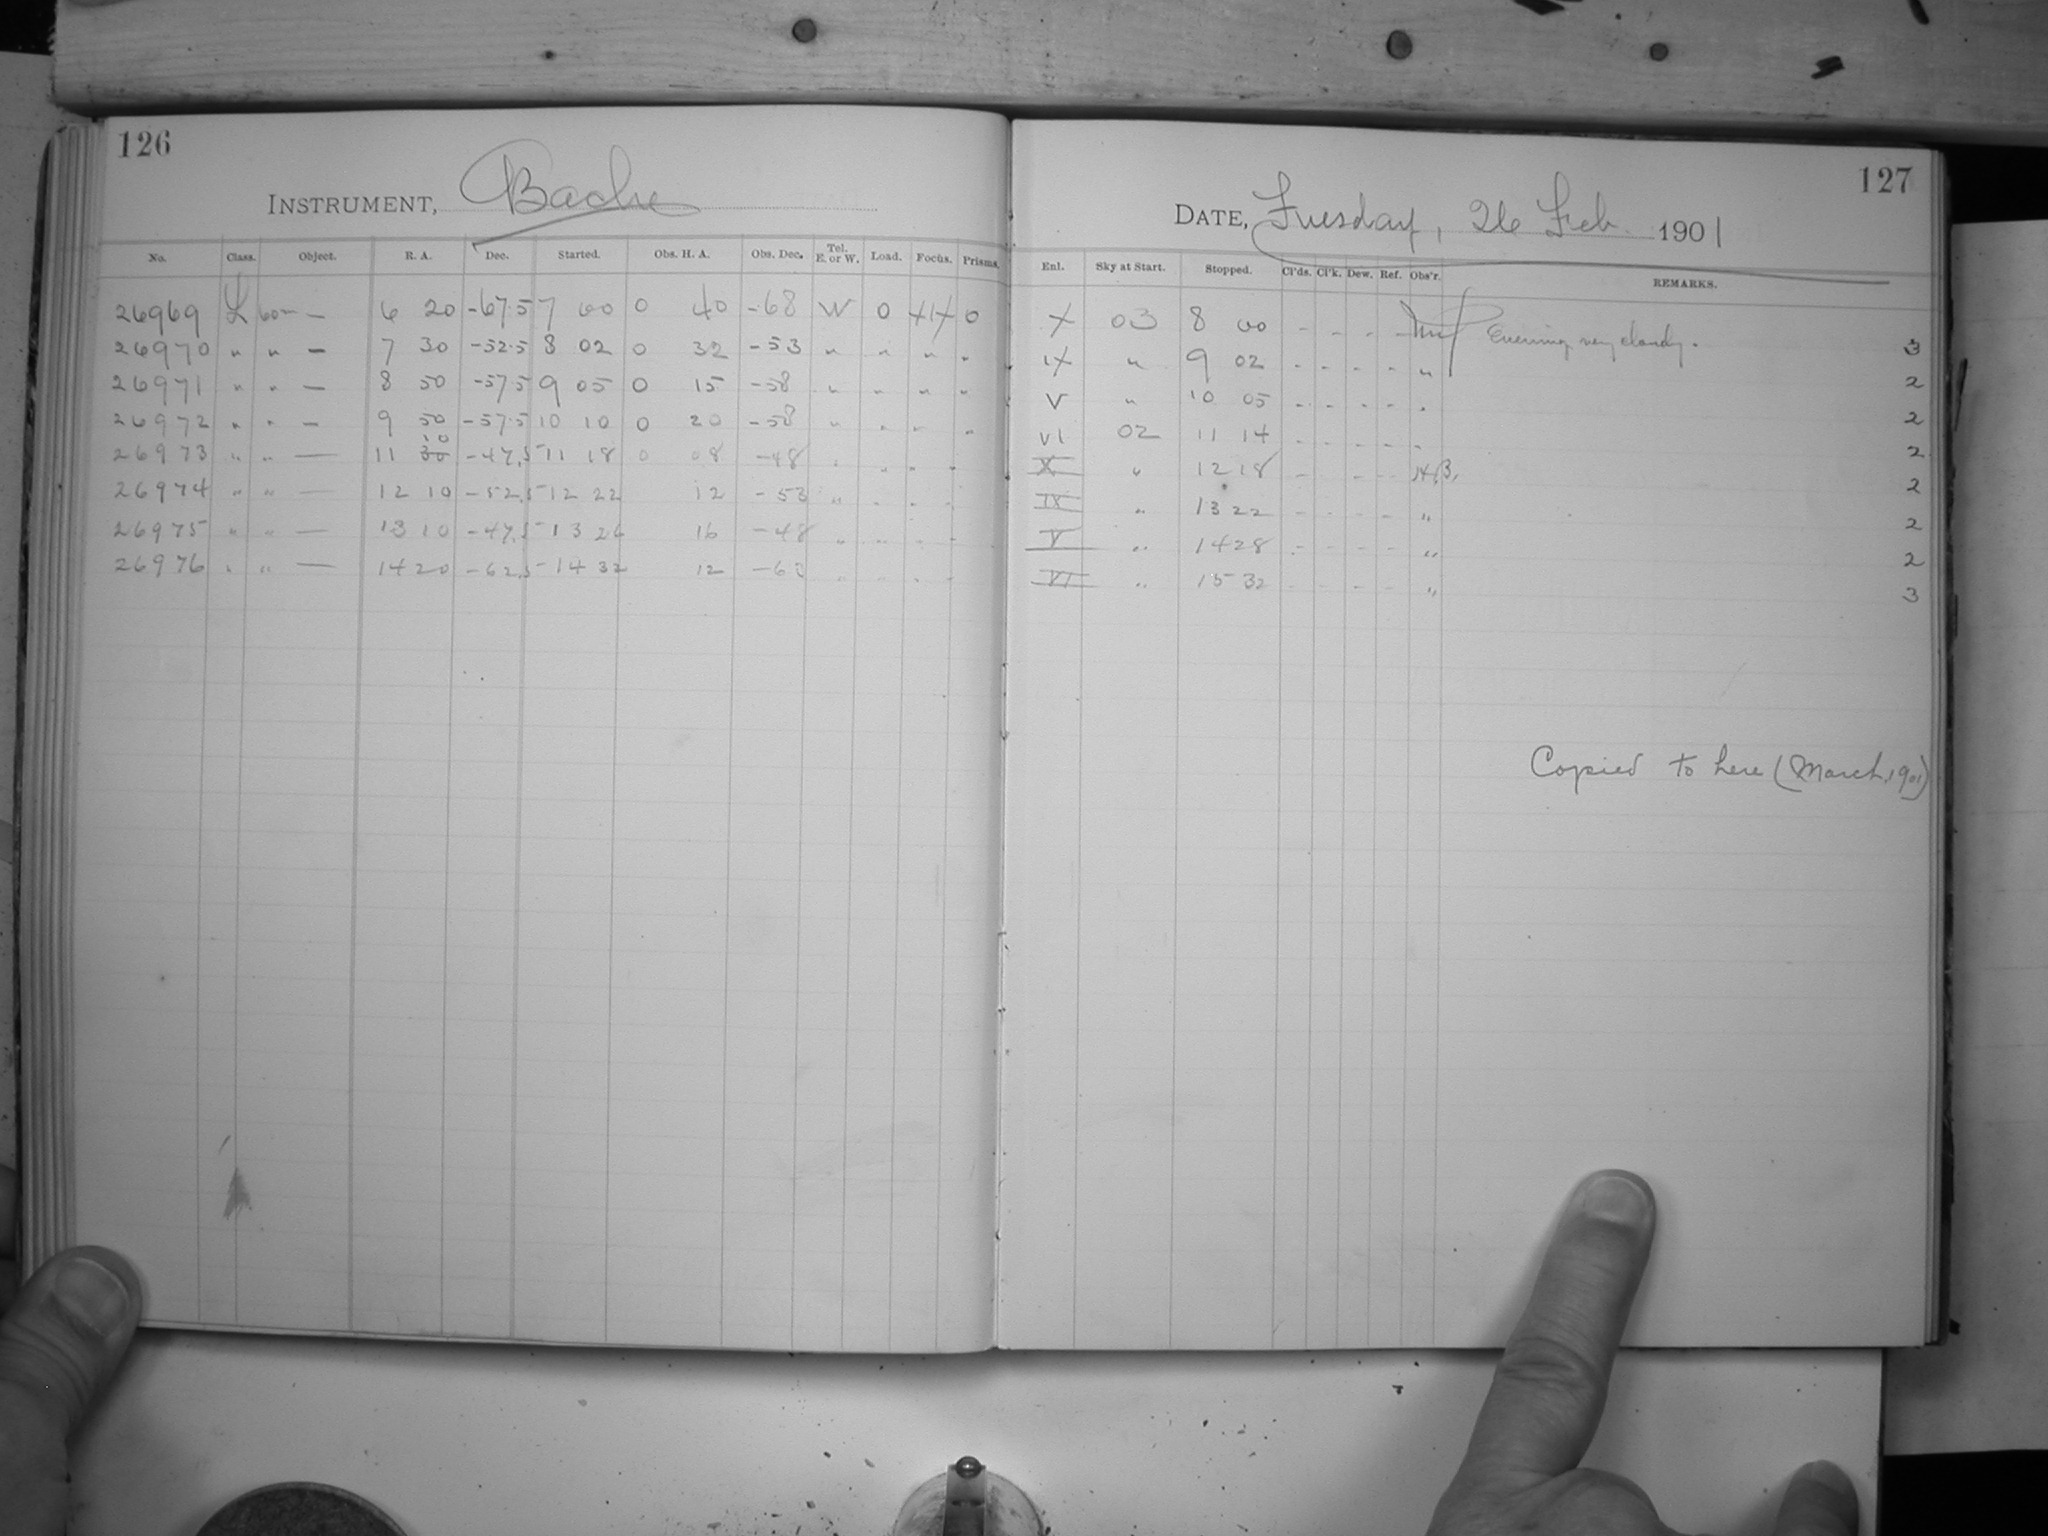 126
INSTRUMENT, Bache
No. Class. Object. R. A. Dec. Started. Obs. H. A. Obs. Dec. Tel. E. or W. Load. Focus. Prisms.
26969 L 60m — 6 20 -67.5 7 00 0 40 -68 W 0 0
26970 " " — 7 30 -52.5 8 02 0 32 -53 " " " "
26971 " " — 8 50 -57.5 9 05 0 15 -58 " " " "
26972 " " — 9 50 -57.5 10 10 0 20 -58 " " " "
26973 " " — 11 10 30 -47.5 11 18 0 08 -48 " " " "
26974 " " — 12 10 -52.5 12 22 12 -53 " " " "
26975 " " — 13 10 -47.5 13 26 16 -48 " " " "
26976 " " — 14 20 -62.5 14 32 12 -63 " " " "
127
DATE, Tuesday, 26 Feb. 1901
Enl. Sky at Start. Stopped. Cl'ds. Cl'k. Dew. Ref. Obs'r. REMARKS.
X 03 8 00 - - - - Evening very cloudy. 3
IX " 9 02 - - - - " 2
V " 10 05 - - - - " 2
VI 02 11 14 - - - - " 2
X " 12 18 - - - - H.B. 2
IX " 13 22 - - - - " 2
V " 14 28 - - - - " 2
VI " 15 32 - - - - " 3
Copied to here (March, 1901)